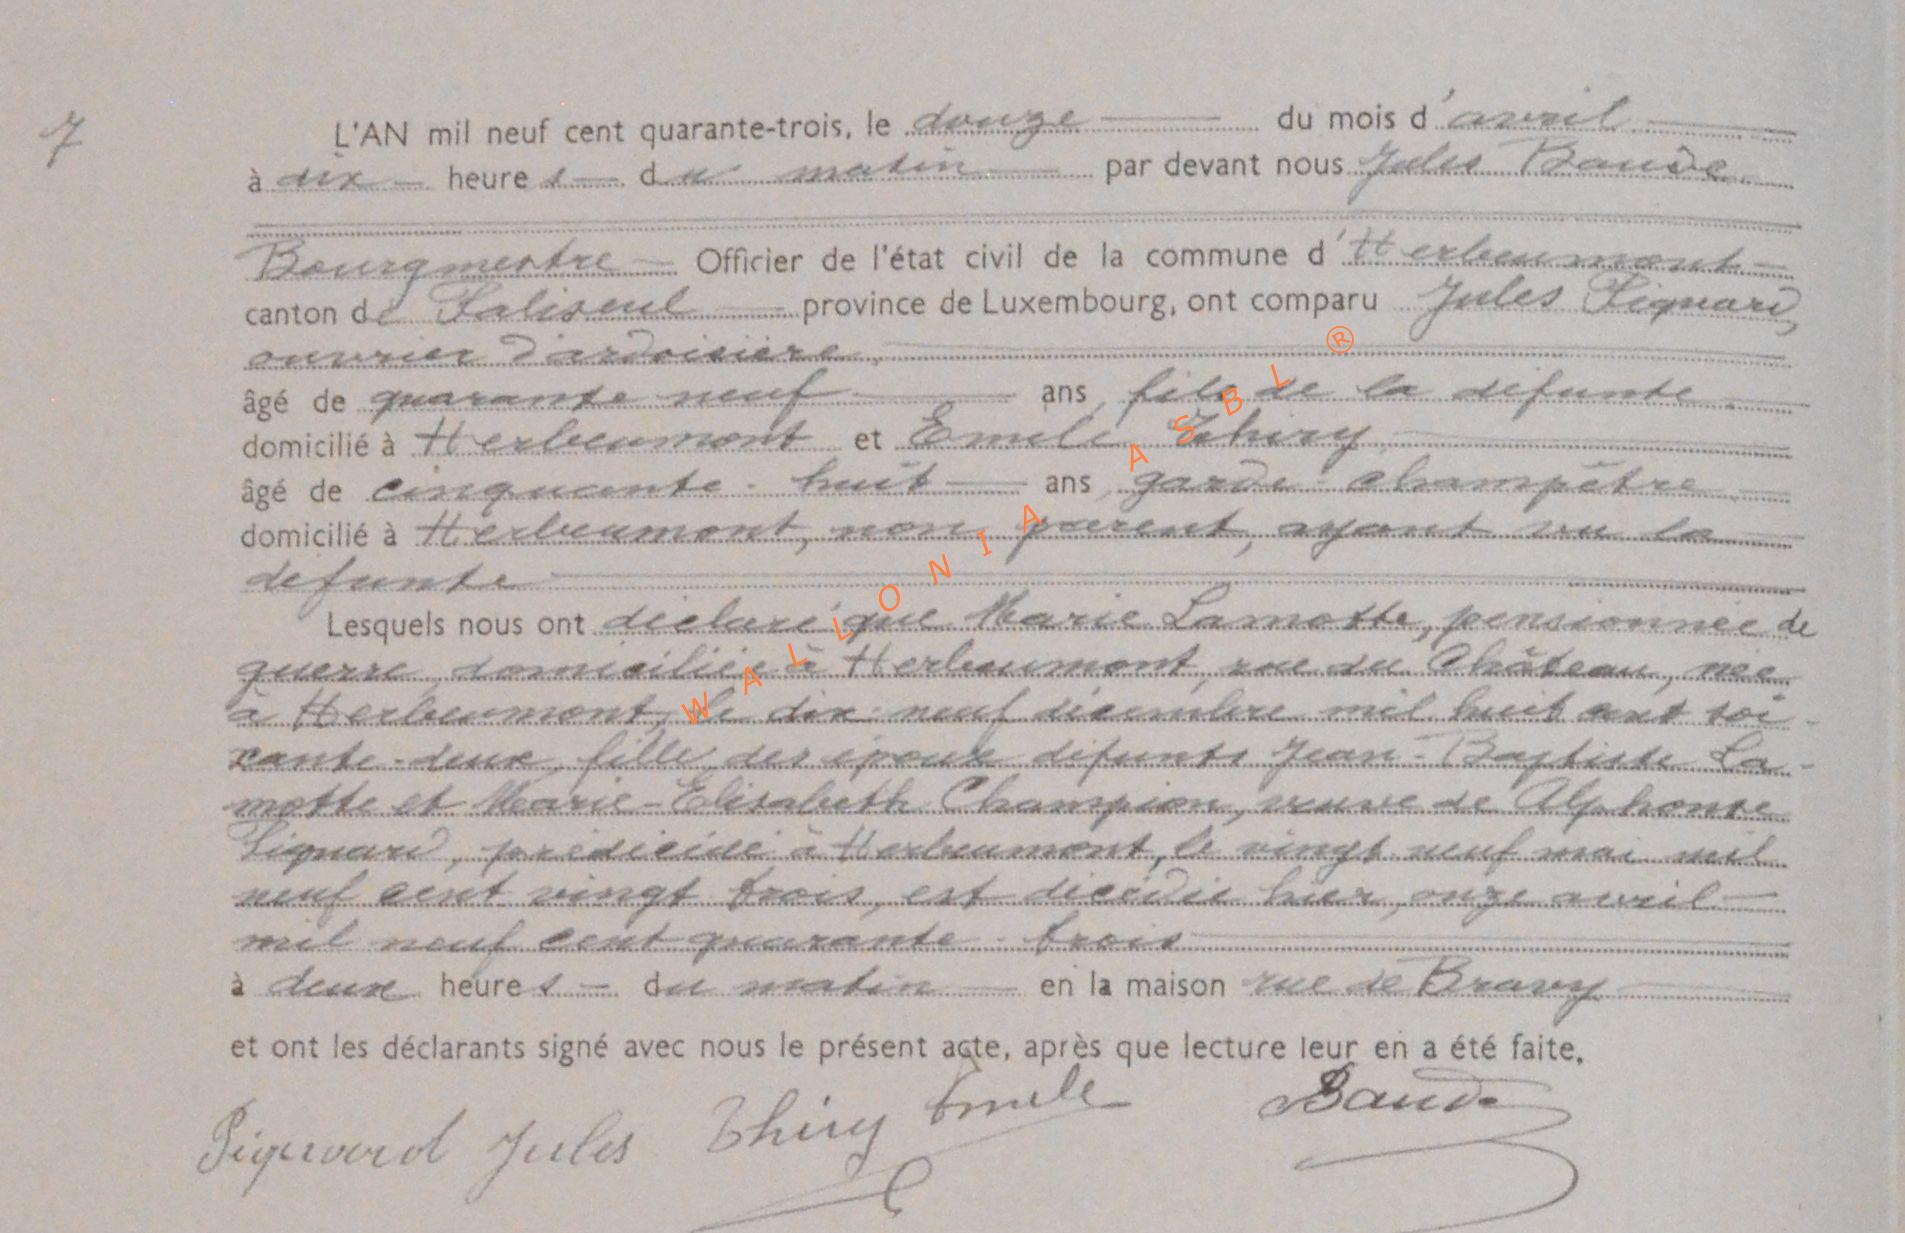 7
L'AN mil neuf cent quarante-trois, le douze du mois d'avril
à dix heures du matin par devant nous Jules Baude
Bourgmestre Officier de l'état civil de la commune d'Herbeumont
canton de Paliseul province de Luxembourg, ont comparu Jules Piquard,
ouvrier d'ardoisière,
âgé de quarante neuf ans, fils de la défunte
domicilié à Herbeumont et Emile Thiry
âgé de cinquante-huit ans, garde-champêtre
domicilié à Herbeumont, non parent, ayant vu la
defunte
Lesquels nous ont déclaré que Marie Lamotte, pensionnée de
guerre, domiciliée à Herbeumont, rue du Château, née
à Herbeumont, le dix-neuf décembre mil huit cent soi-
xante-deux, fille des époux défunts Jean-Baptiste La-
motte et Marie-Elisabeth Champion, veuve de Alphonse
Piquard, prédécédé à Herbeumont, le vingt neuf mai mil
neuf cent vingt trois, est décédée hier, onze avril
mil neuf cent quarante-trois
à deux heures du matin en la maison rue de Bravy
et ont les déclarants signé avec nous le présent acte, après que lecture leur en a été faite.
Piquard Jules Thiry Emile Baude
WALLONIA ASBL ®